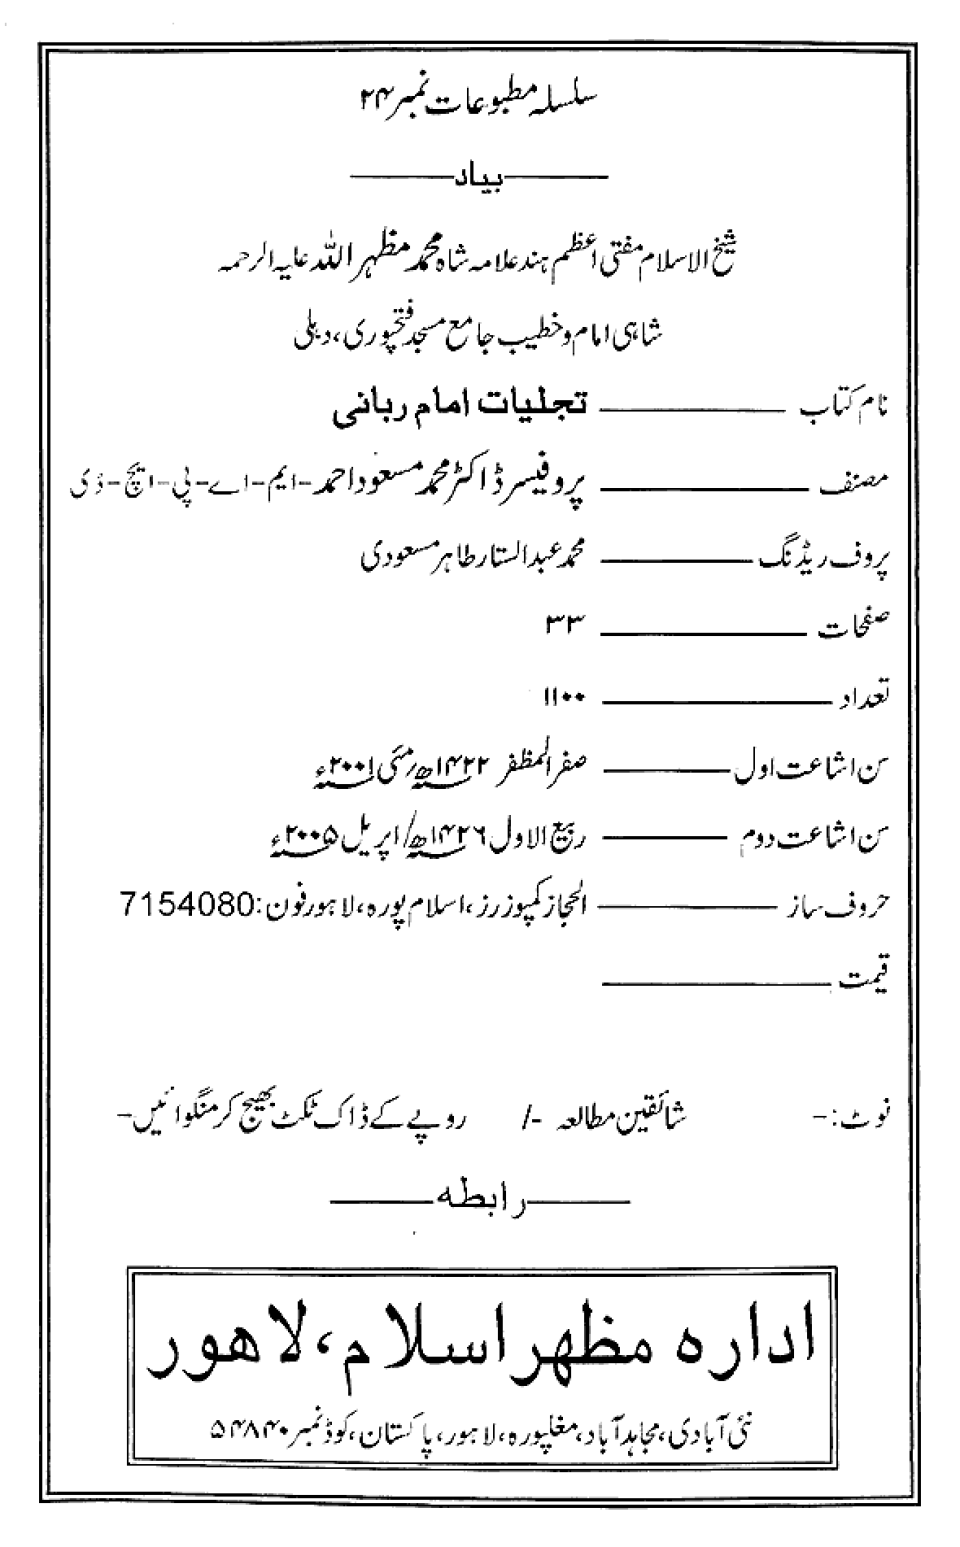 سلسلہ مطبوعات نمبر ۲۴
بیاد
شیخ الاسلام مفتی اعظم ہند علامہ شاہ محمد مظہر اللہ علیہ الرحمہ
شاہی امام و خطیب جامع مسجد فتحپوری، دہلی
نام کتاب ـــــــ تجلیات امام ربانی
مصنف ـــــــ پروفیسر ڈاکٹر محمد مسعود احمد-ایم-اے-پی-ایچ-ڈی
پروف ریڈنگ ـــــــ محمد عبدالستار طاہر مسعودی
صفحات ـــــــ ۳۳
تعداد ـــــــ ۱۱۰۰
سن اشاعت اول ـــــــ صفر المظفر ۱۴۲۲ھ/مئی ۲۰۰۱ء
سن اشاعت دوم ـــــــ ربیع الاول ۱۴۲۶ھ/اپریل ۲۰۰۵ء
حروف ساز ـــــــ الحجاز کمپوزرز، اسلام پورہ، لاہور فون: 7154080
قیمت ـــــــ
نوٹ:- شائقین مطالعہ /- روپے کے ڈاک ٹکٹ بھیج کر منگوائیں-
رابطہ
ادارہ مظہر اسلام، لاہور
نئی آبادی، مجاہد آباد، مغلپورہ، لاہور، پاکستان، کوڈ نمبر ۵۴۸۴۰